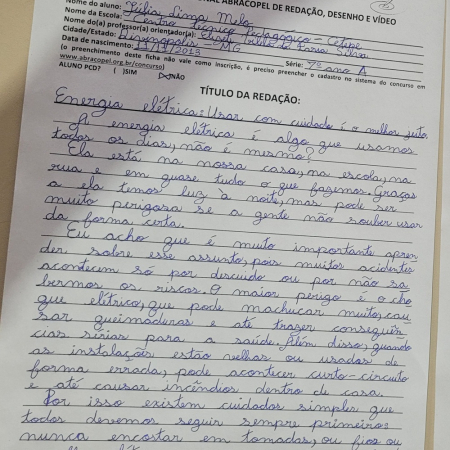 NAL ABRACOPEL DE REDAÇÃO, DESENHO E VÍDEO
Nome do aluno: Júlia Lima Melo
Nome da Escola: Centro Técnico Pedagógico - Cetepe
Nome do(a) professor(a) orientador(a): de Faria Silva
Cidade/Estado: Divinópolis - MG
Data de nascimento: Série: 7º ano A
(o preenchimento deste ficha não vale como inscrição, é preciso preencher o cadastro no sistema do concurso em
www.abracopel.org.br/concurso)
ALUNO PCD? ( )SIM (X)NÃO
TÍTULO DA REDAÇÃO:
Energia elétrica: Usar com cuidado é o melhor jeito
A energia elétrica é algo que usamos
todos os dias, não é mesmo?
Ela está na nossa casa, na escola, na
rua e em quase tudo o que fazemos. Graças
a ela temos luz à noite, mas pode ser
muito perigosa se a gente não souber usar
da forma certa.
Eu acho que é muito importante apren
der sobre esse assunto, pois muitos acidentes
acontecem só por descuido ou por não sa
bermos os riscos. O maior perigo é o cho
que elétrico, que pode machucar muito, cau
sar queimaduras e até trazer consequên
cias sérias para a saúde. Além disso, quando
as instalações estão velhas ou usadas de
forma errada, pode acontecer curto-circuito
e até causar incêndios dentro de casa.
Por isso existem cuidados simples que
todos devemos seguir sempre primeiro:
nunca encostar em tomadas, ou fios ou